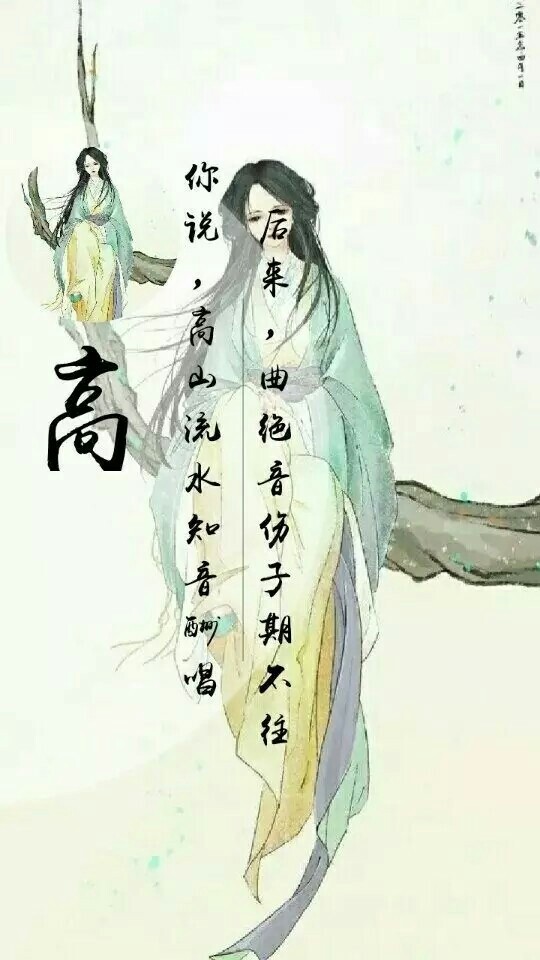 二零一五年四月一日
高
你说，高山流水知音酬唱
后来，曲绝音伤子期不往